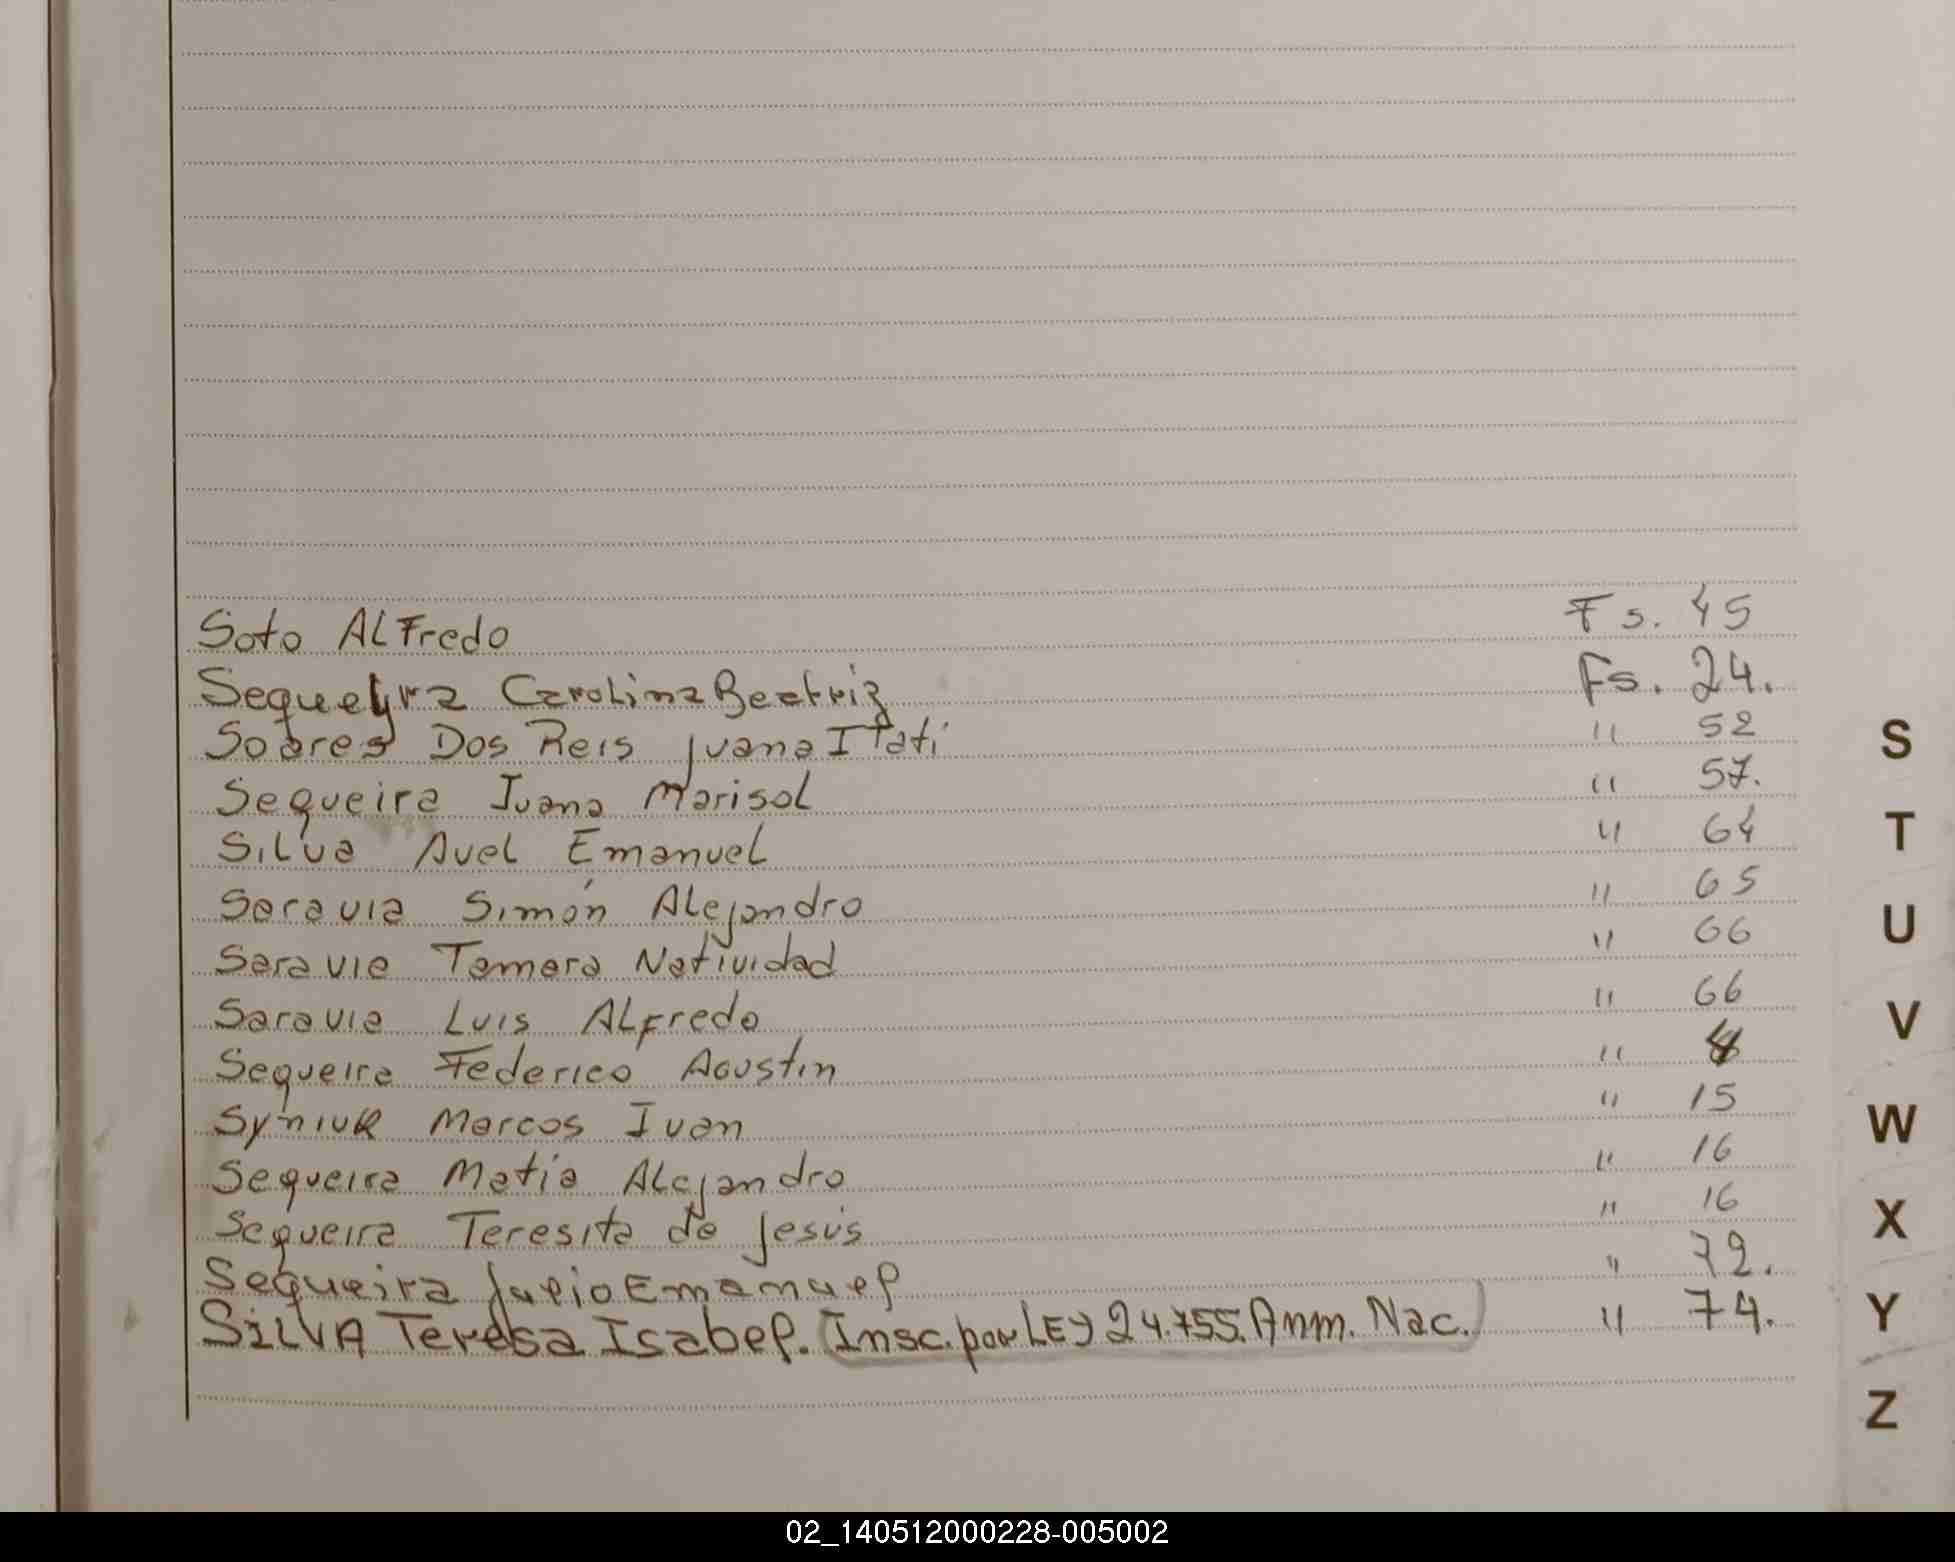 Soto ALFredo Fs. 45
Sequeyra Carolina Beatriz Fs. 24.
Soares Dos Reis Juana Itati " 52
Sequeira Juana Marisol " 57.
Silva Avel Emanuel " 64
Saravia Simón Alejandro " 65
Saravia Tamara Natividad " 66
Saravia Luis ALFredo " 66
Sequeira Federico Agustin "
Syniuk Marcos Ivan " 15
Sequeira Matia Alejandro " 16
Sequeira Teresita de Jesús " 16
Sequeira Julio Emanuel " 72.
SILVA Teresa Isabel. (Insc. por LEY 24.755. Anm. Nac.) " 74.
S
T
U
V
W
X
Y
Z
02_140512000228-005002